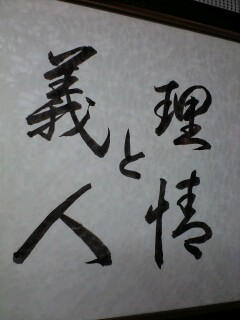 義理
と
人情